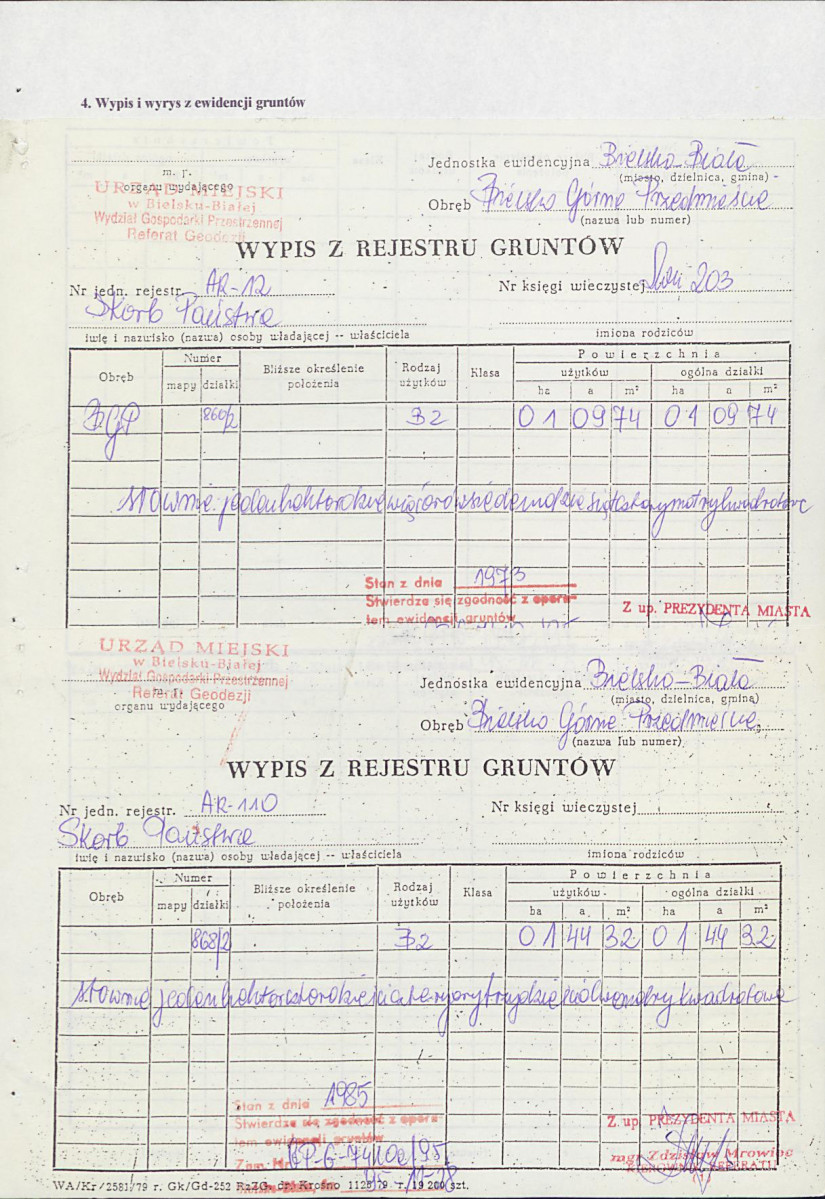 4. Wypis i wyrys z ewidencji gruntów
m. p.
organu wydającego
URZĄD MIEJSKI
w Bielsku-Białej
Wydział Gospodarki Przestrzennej
Referat Geodezji
Jednostka ewidencyjna Bielsko-Biała
(miasto, dzielnica, gmina)
Obręb Bielsko Górne Przedmieście
(nazwa lub numer)
WYPIS Z REJESTRU GRUNTÓW
Nr jedn. rejestr. AR-12
Nr księgi wieczystej 203
Skarb Państwa
imię i nazwisko (nazwa) osoby władającej -- właściciela
imiona rodziców
Obręb Numer Bliższe określenie położenia Rodzaj użytków Klasa Powierzchnia
mapy działki użytków ogólna działki
ha a m² ha a m²
BGP 860/2 B2 01 09 74 01 09 74
słownie: jeden hektor dziewięć arów siedemdziesiąt cztery metry kwadratowe
Stan z dnia 1973
Stwierdza się zgodność z opera-
tem ewidencji gruntów
Z up. PREZYDENTA MIASTA
URZĄD MIEJSKI
w Bielsku-Białej
Wydział Gospodarki Przestrzennej
Referat Geodezji
organu wydającego
Jednostka ewidencyjna Bielsko-Biała
(miasto, dzielnica, gmina)
Obręb Bielsko Górne Przedmieście
(nazwa lub numer)
WYPIS Z REJESTRU GRUNTÓW
Nr jedn. rejestr. AR-110
Nr księgi wieczystej
Skarb Państwa
imię i nazwisko (nazwa) osoby władającej -- właściciela
imiona rodziców
Obręb Numer Bliższe określenie położenia Rodzaj użytków Klasa Powierzchnia
mapy działki użytków ogólna działki
ha a m² ha a m²
868/2 B2 01 44 32 01 44 32
słownie jeden hektar czterdzieści cztery ary trzydzieści dwa metry kwadratowe
Stan z dnia 1985
Stwierdza się zgodność z opera-
tem ewidencji gruntów
Z up. PREZYDENTA MIASTA
mgr Zdzisław Mrowiec
KIEROWNIK REFERATU
WA/Kr/2581/79 r. Gk/Gd-252 RzZG, dp. Krosno 1129/79 r. 19 200 szt.